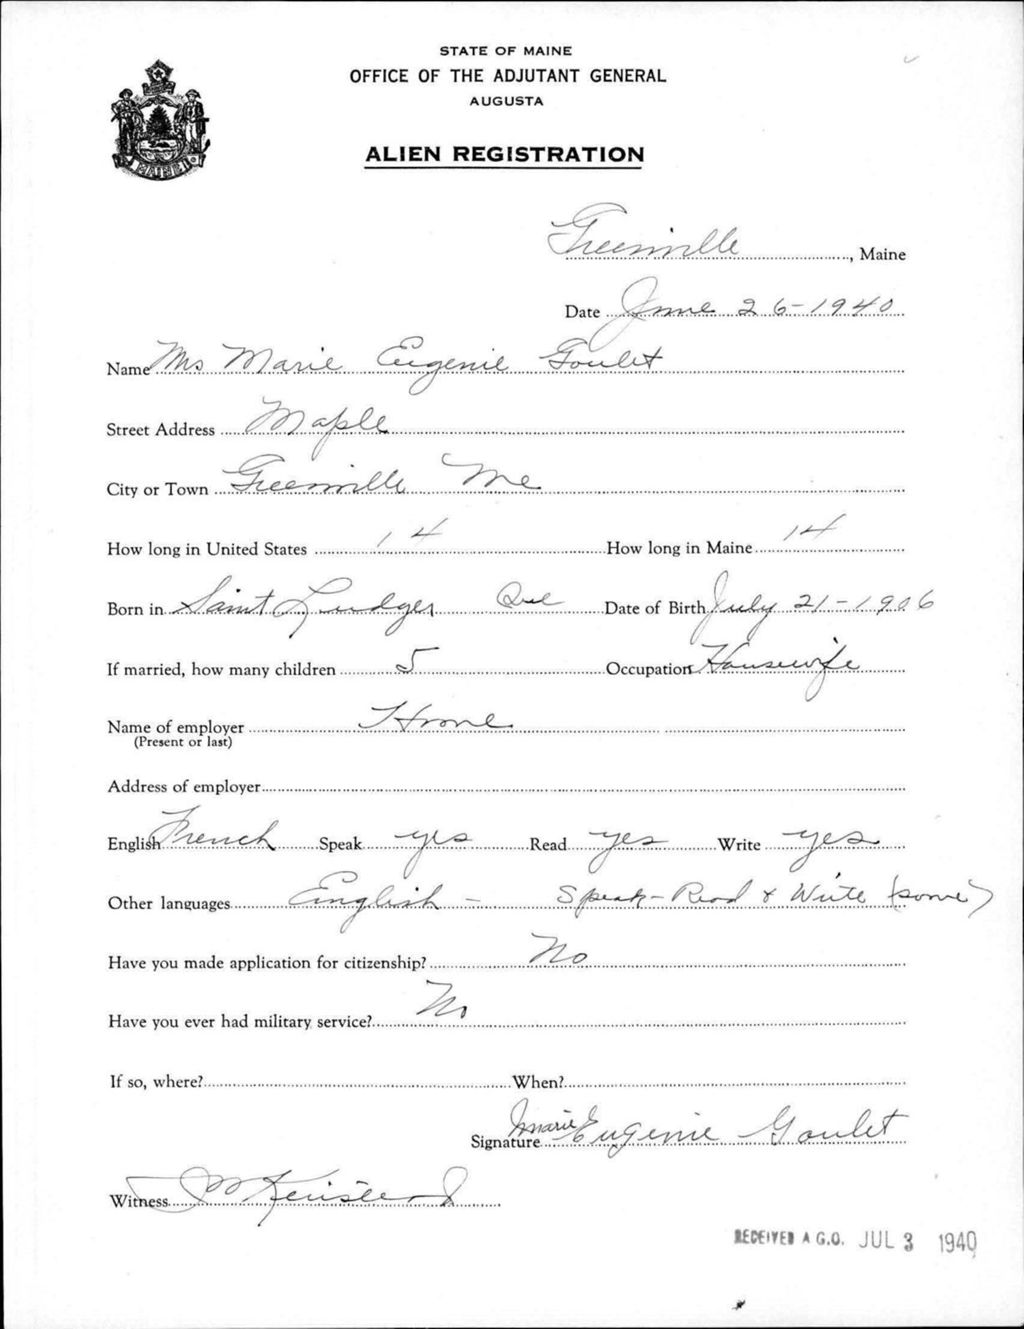 STATE OF MAINE
OFFICE OF THE ADJUTANT GENERAL
AUGUSTA
ALIEN REGISTRATION
MAINE
Greenville, Maine
Date June 26-1940
Name Mrs Marie Eugenie Goulet
Street Address Maple
City or Town Greenville Me
How long in United States 14 How long in Maine 14
Born in Saint Ludger Que Date of Birth July 21-1906
If married, how many children 5 Occupation Housewife
Name of employer Home
(Present or last)
Address of employer
English French Speak yes Read yes Write yes
Other languages English - Speak - Read & Write (some)
Have you made application for citizenship? No
Have you ever had military service? No
If so, where? When?
Signature Marie Eugenie Goulet
Witness
RECEIVED A.G.O. JUL 3 1940